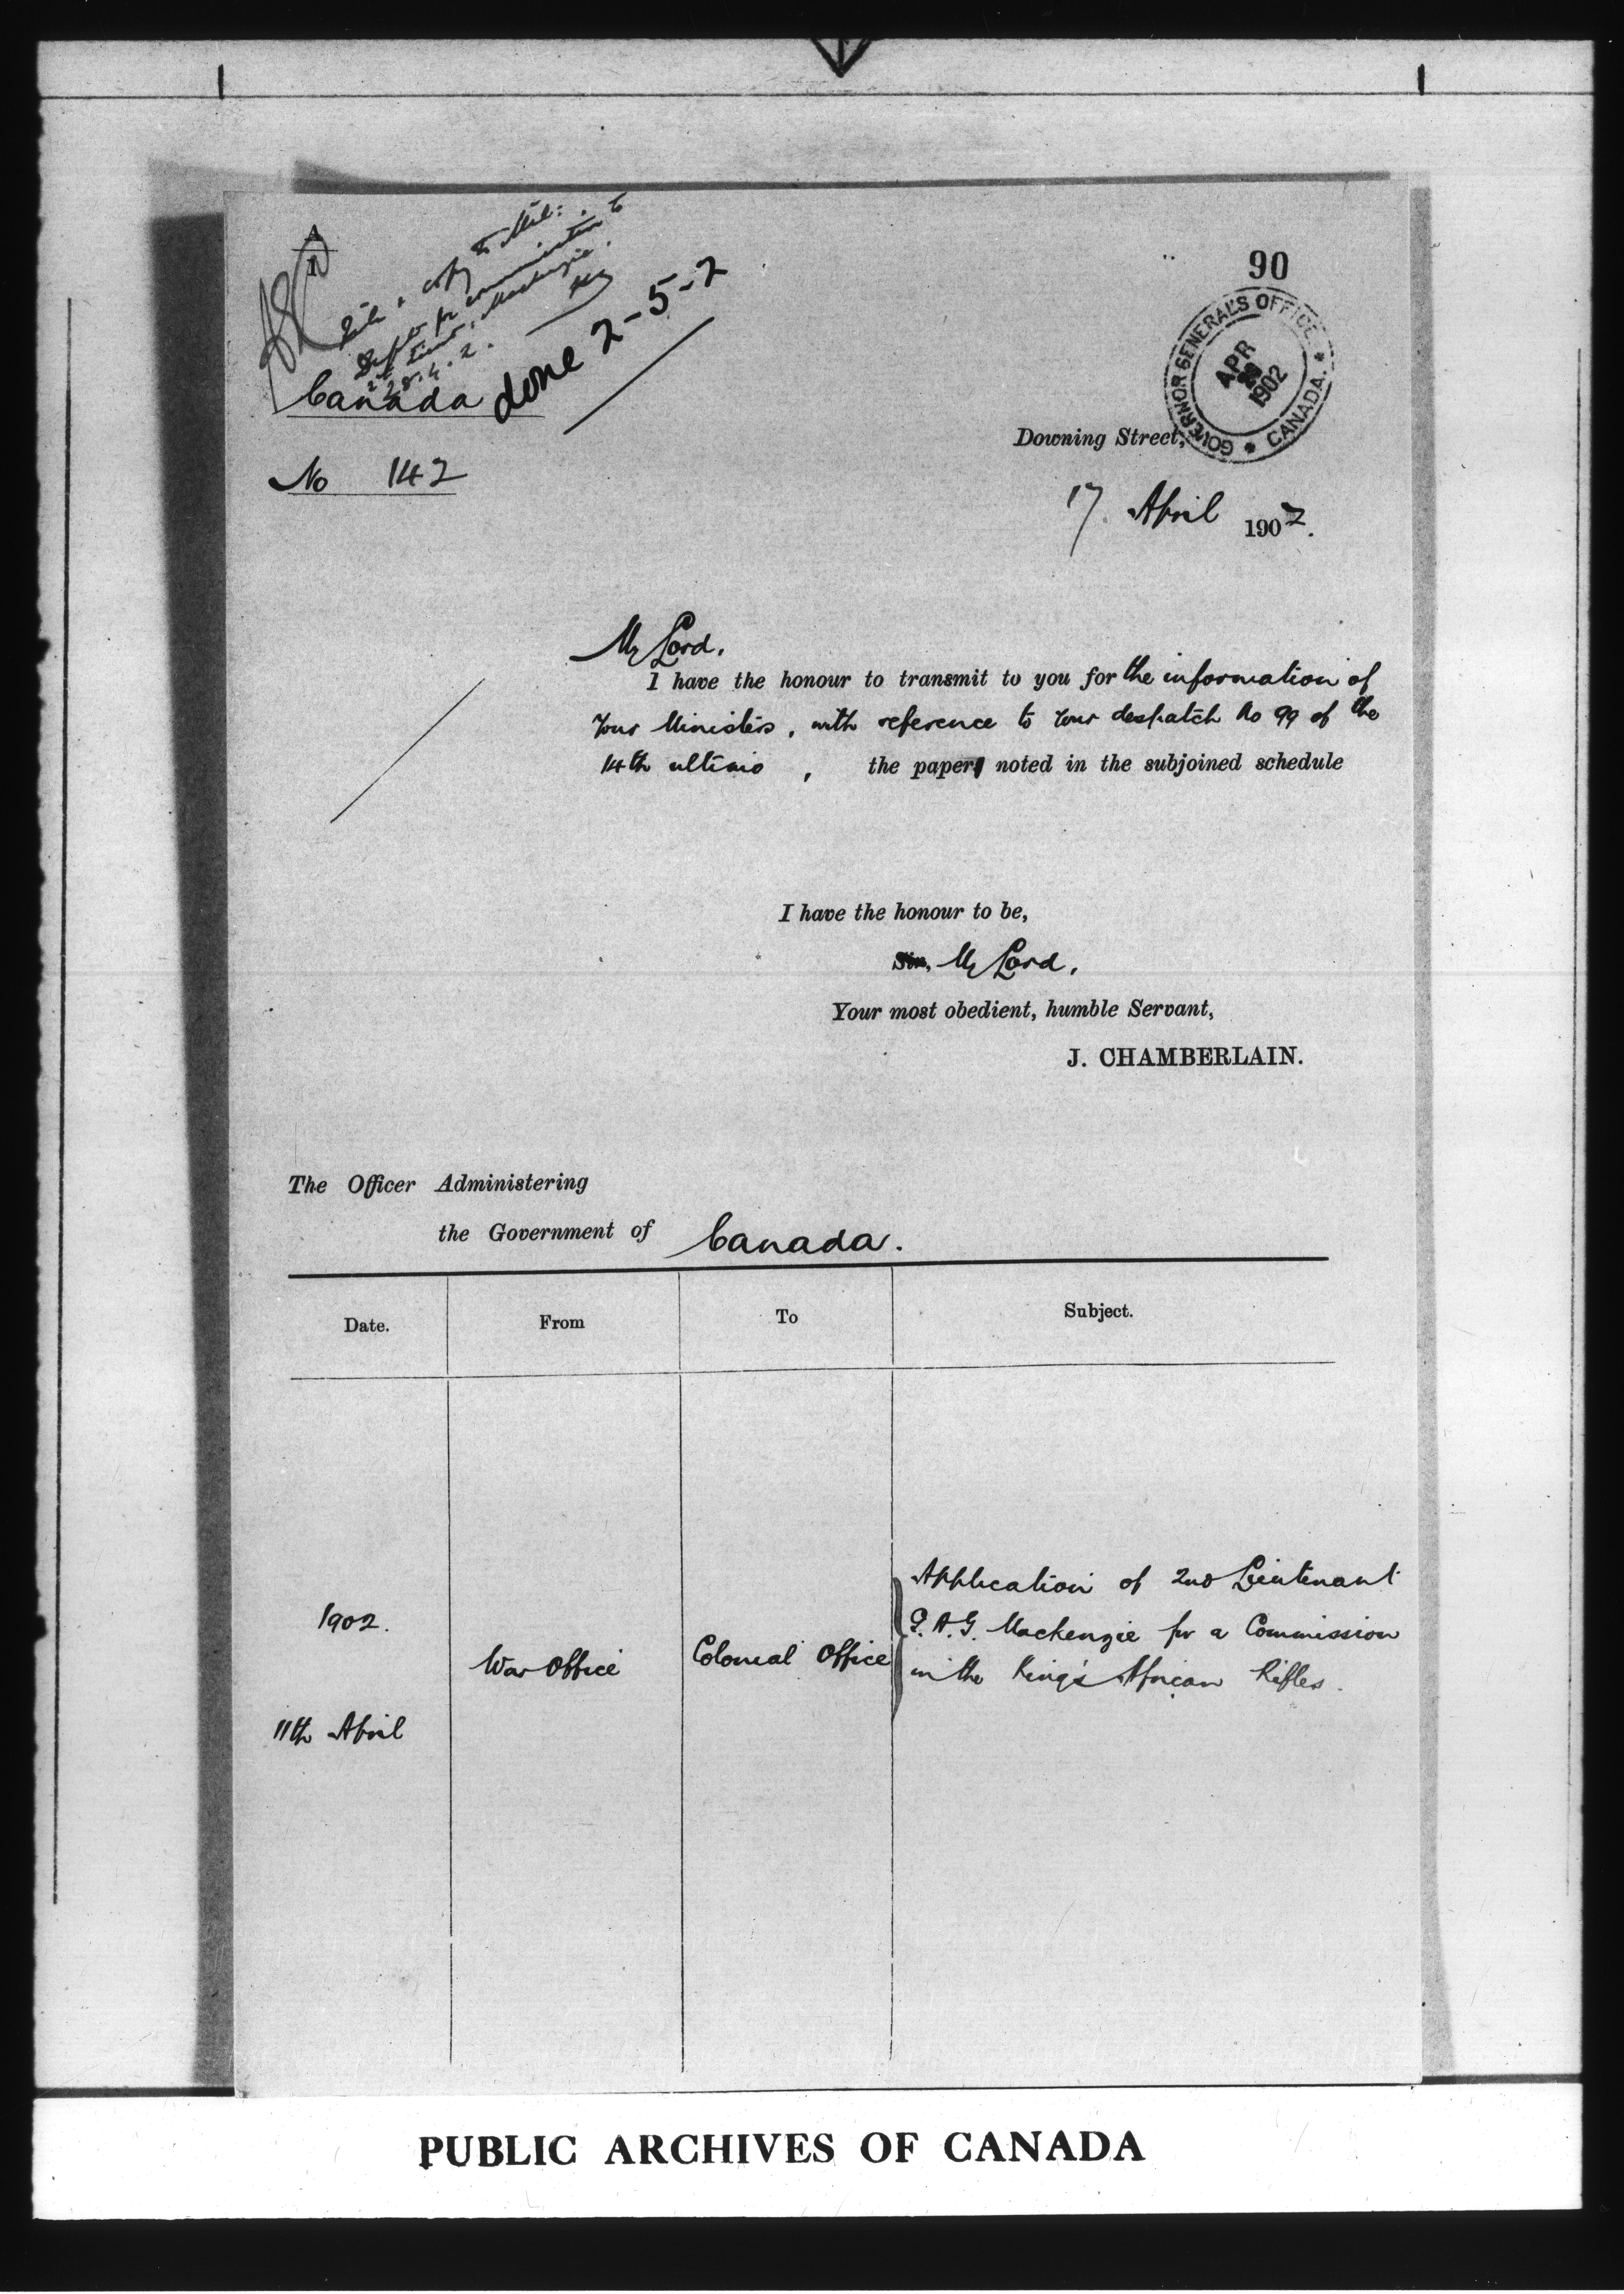 A
1
copy to Mil:
Dept for communication to
2d Lieut. Mackenzie.
28.4.2.
done 2-5-2
90
GOVERNOR GENERAL'S OFFICE
APR
1902
* CANADA. *
Canada
Downing Street,
No 142
17. April 1902.
My Lord,
I have the honour to transmit to you for the information of
your Ministers, with reference to your despatch No 99 of the
14th ultimo, the paper noted in the subjoined schedule
I have the honour to be,
Sir, My Lord,
Your most obedient, humble Servant,
J. CHAMBERLAIN.
The Officer Administering
the Government of Canada.
Date. From To Subject.
Application of 2nd Lieutenant
1902. G. A. G. Mackenzie for a Commission
War Office Colonial Office in the King's African Rifles.
11th April
PUBLIC ARCHIVES OF CANADA